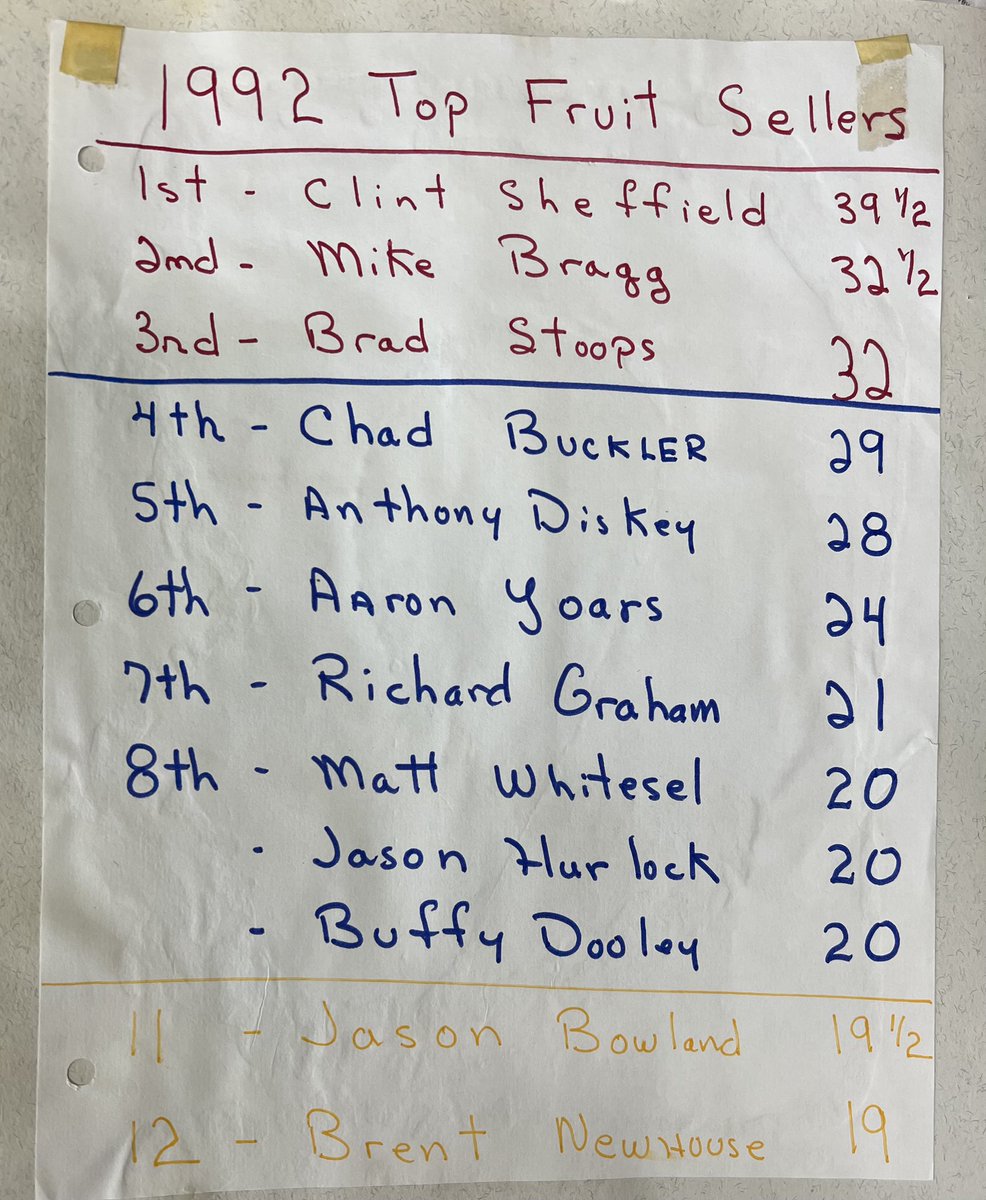 1992 Top Fruit Sellers
1st - Clint Sheffield 39 1/2
2md - Mike Bragg 32 1/2
3nd - Brad Stoops 32
4th - Chad BUCKLER 29
5th - Anthony Diskey 28
6th - AAron Yoars 24
7th - Richard Graham 21
8th - Matt Whitesel 20
- Jason Hurlock 20
- Buffy Dooley 20
11 - Jason Bowland 19 1/2
12 - Brent NEWHOUSE 19